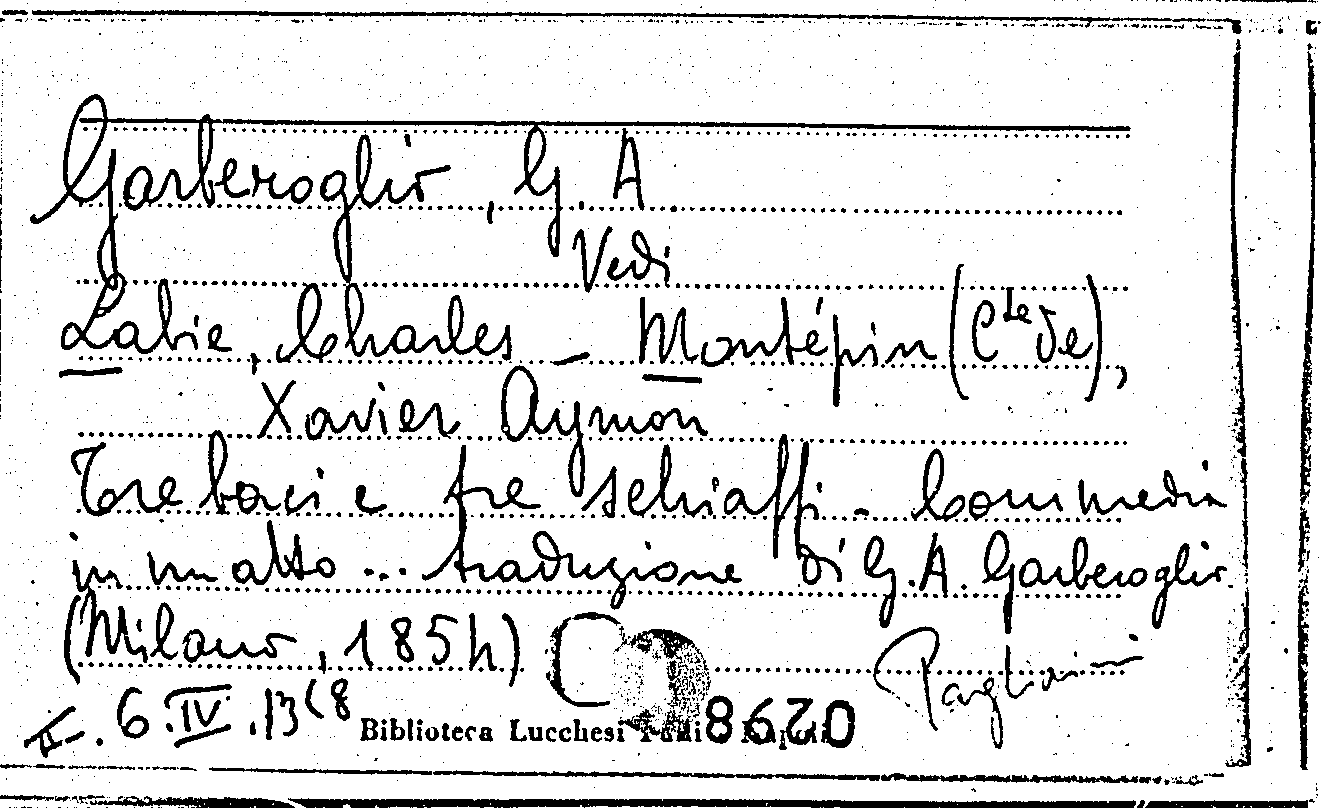 Garberoglio, G. A.
Vedi
Labie, Charles - Montépin (Cte de),
Xavier Aymon
Tre baci e tre schiaffi - Commedia
in un atto... traduzione di G. A. Garberoglio.
(Milano, 1854)
6.IV.
Biblioteca Lucchesi